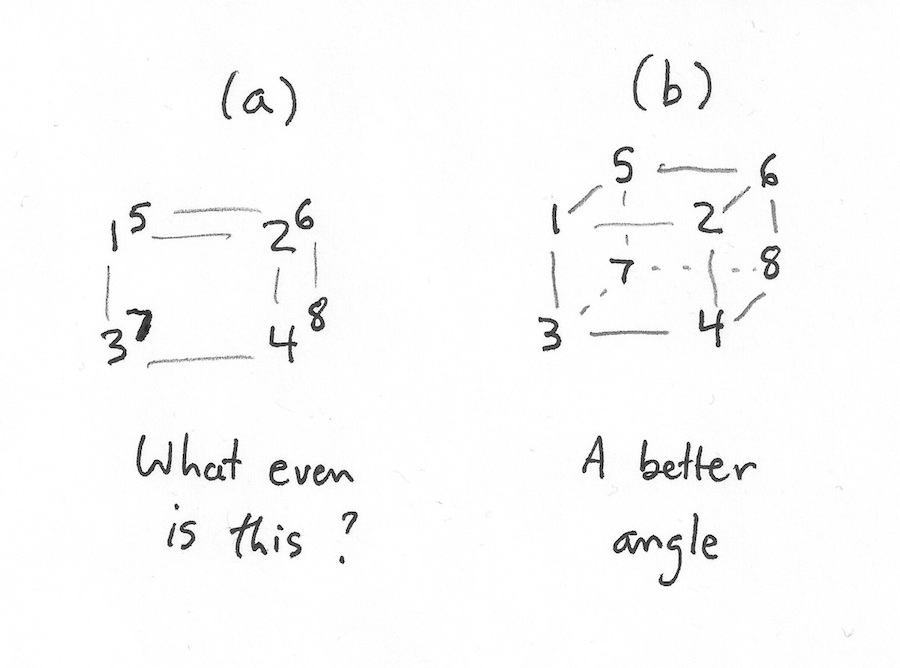 (a)
1 5 2 6
3 7 4 8
What even
is this ?
(b)
5 6
1 2
7 8
3 4
A better
angle